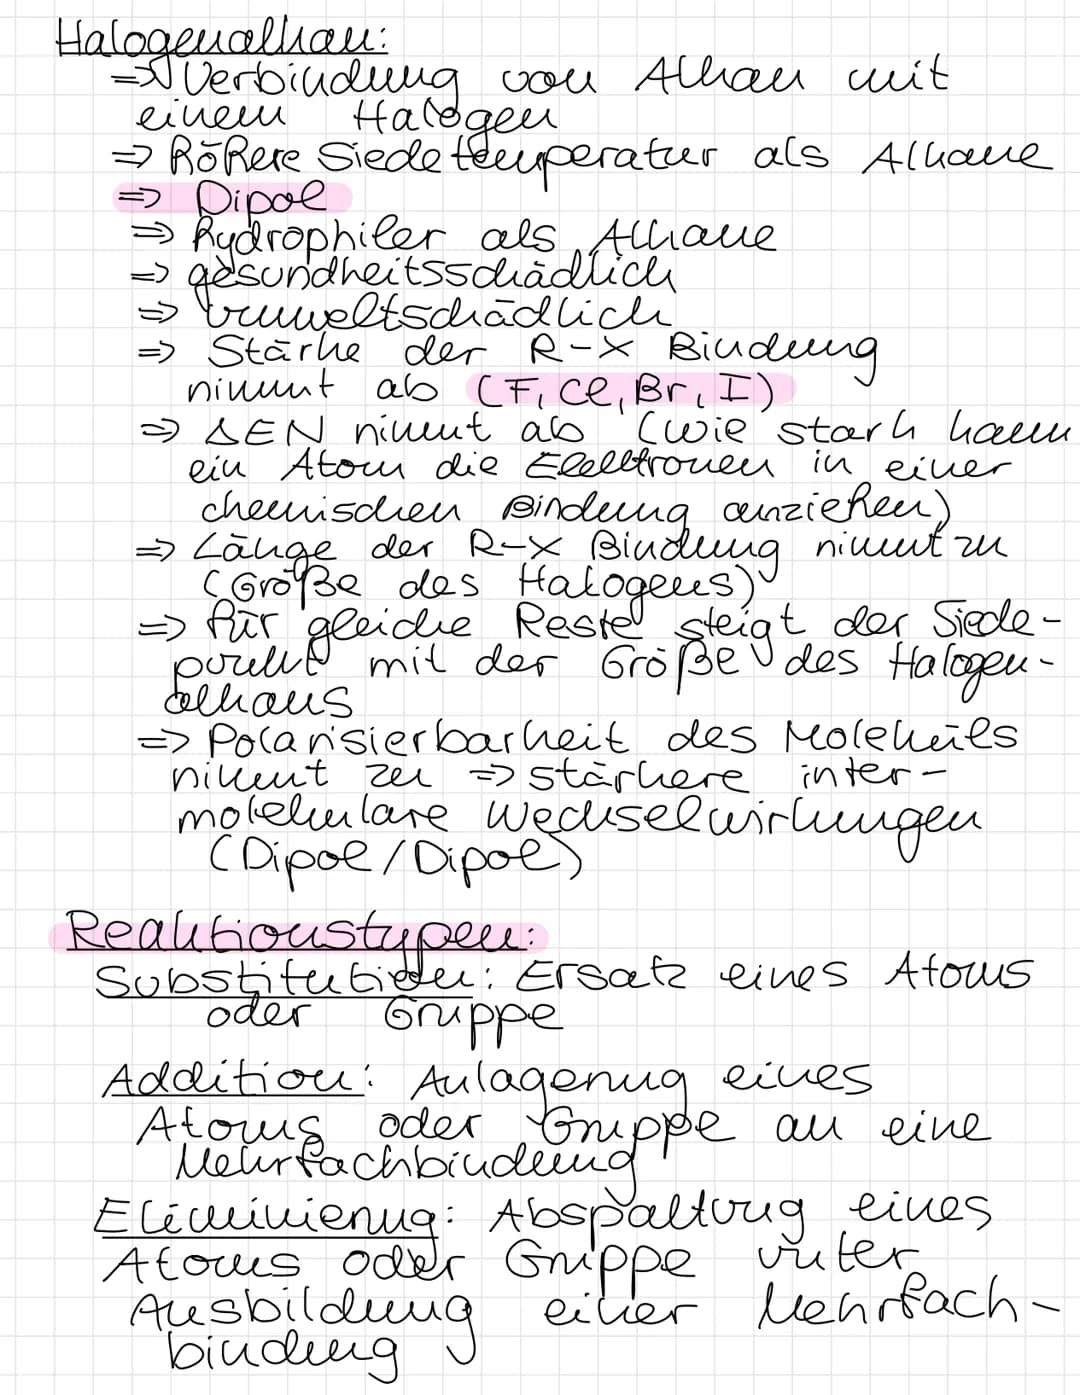 Halogenalkan:
=> Verbindung von Alkan mit
einem Halogen
=> höhere Siedetemperatur als Alkane
=> Dipol
=> hydrophiler als Alkane
=> gesundheitsschädlich
=> umweltschädlich
=> Stärke der R-X Bindung
nimmt ab (F, Cl, Br, I)
=> ΔEN nimmt ab (wie stark kann
ein Atom die Elektronen in einer
chemischen Bindung anziehen)
=> Länge der R-X Bindung nimmt zu
(Größe des Halogens)
=> für gleiche Reste steigt der Siede-
punkt mit der Größe des Halogen-
alkans
=> Polarisierbarkeit des Moleküls
nimmt zu => stärkere inter-
molekulare Wechselwirkungen
(Dipol/Dipol)
Reaktionstypen:
Substitution: Ersatz eines Atoms
oder Gruppe
Addition: Anlagerung eines
Atoms oder Gruppe an eine
Mehrfachbindung
Eliminierung: Abspaltung eines
Atoms oder Gruppe unter
Ausbildung einer Mehrfach-
bindung